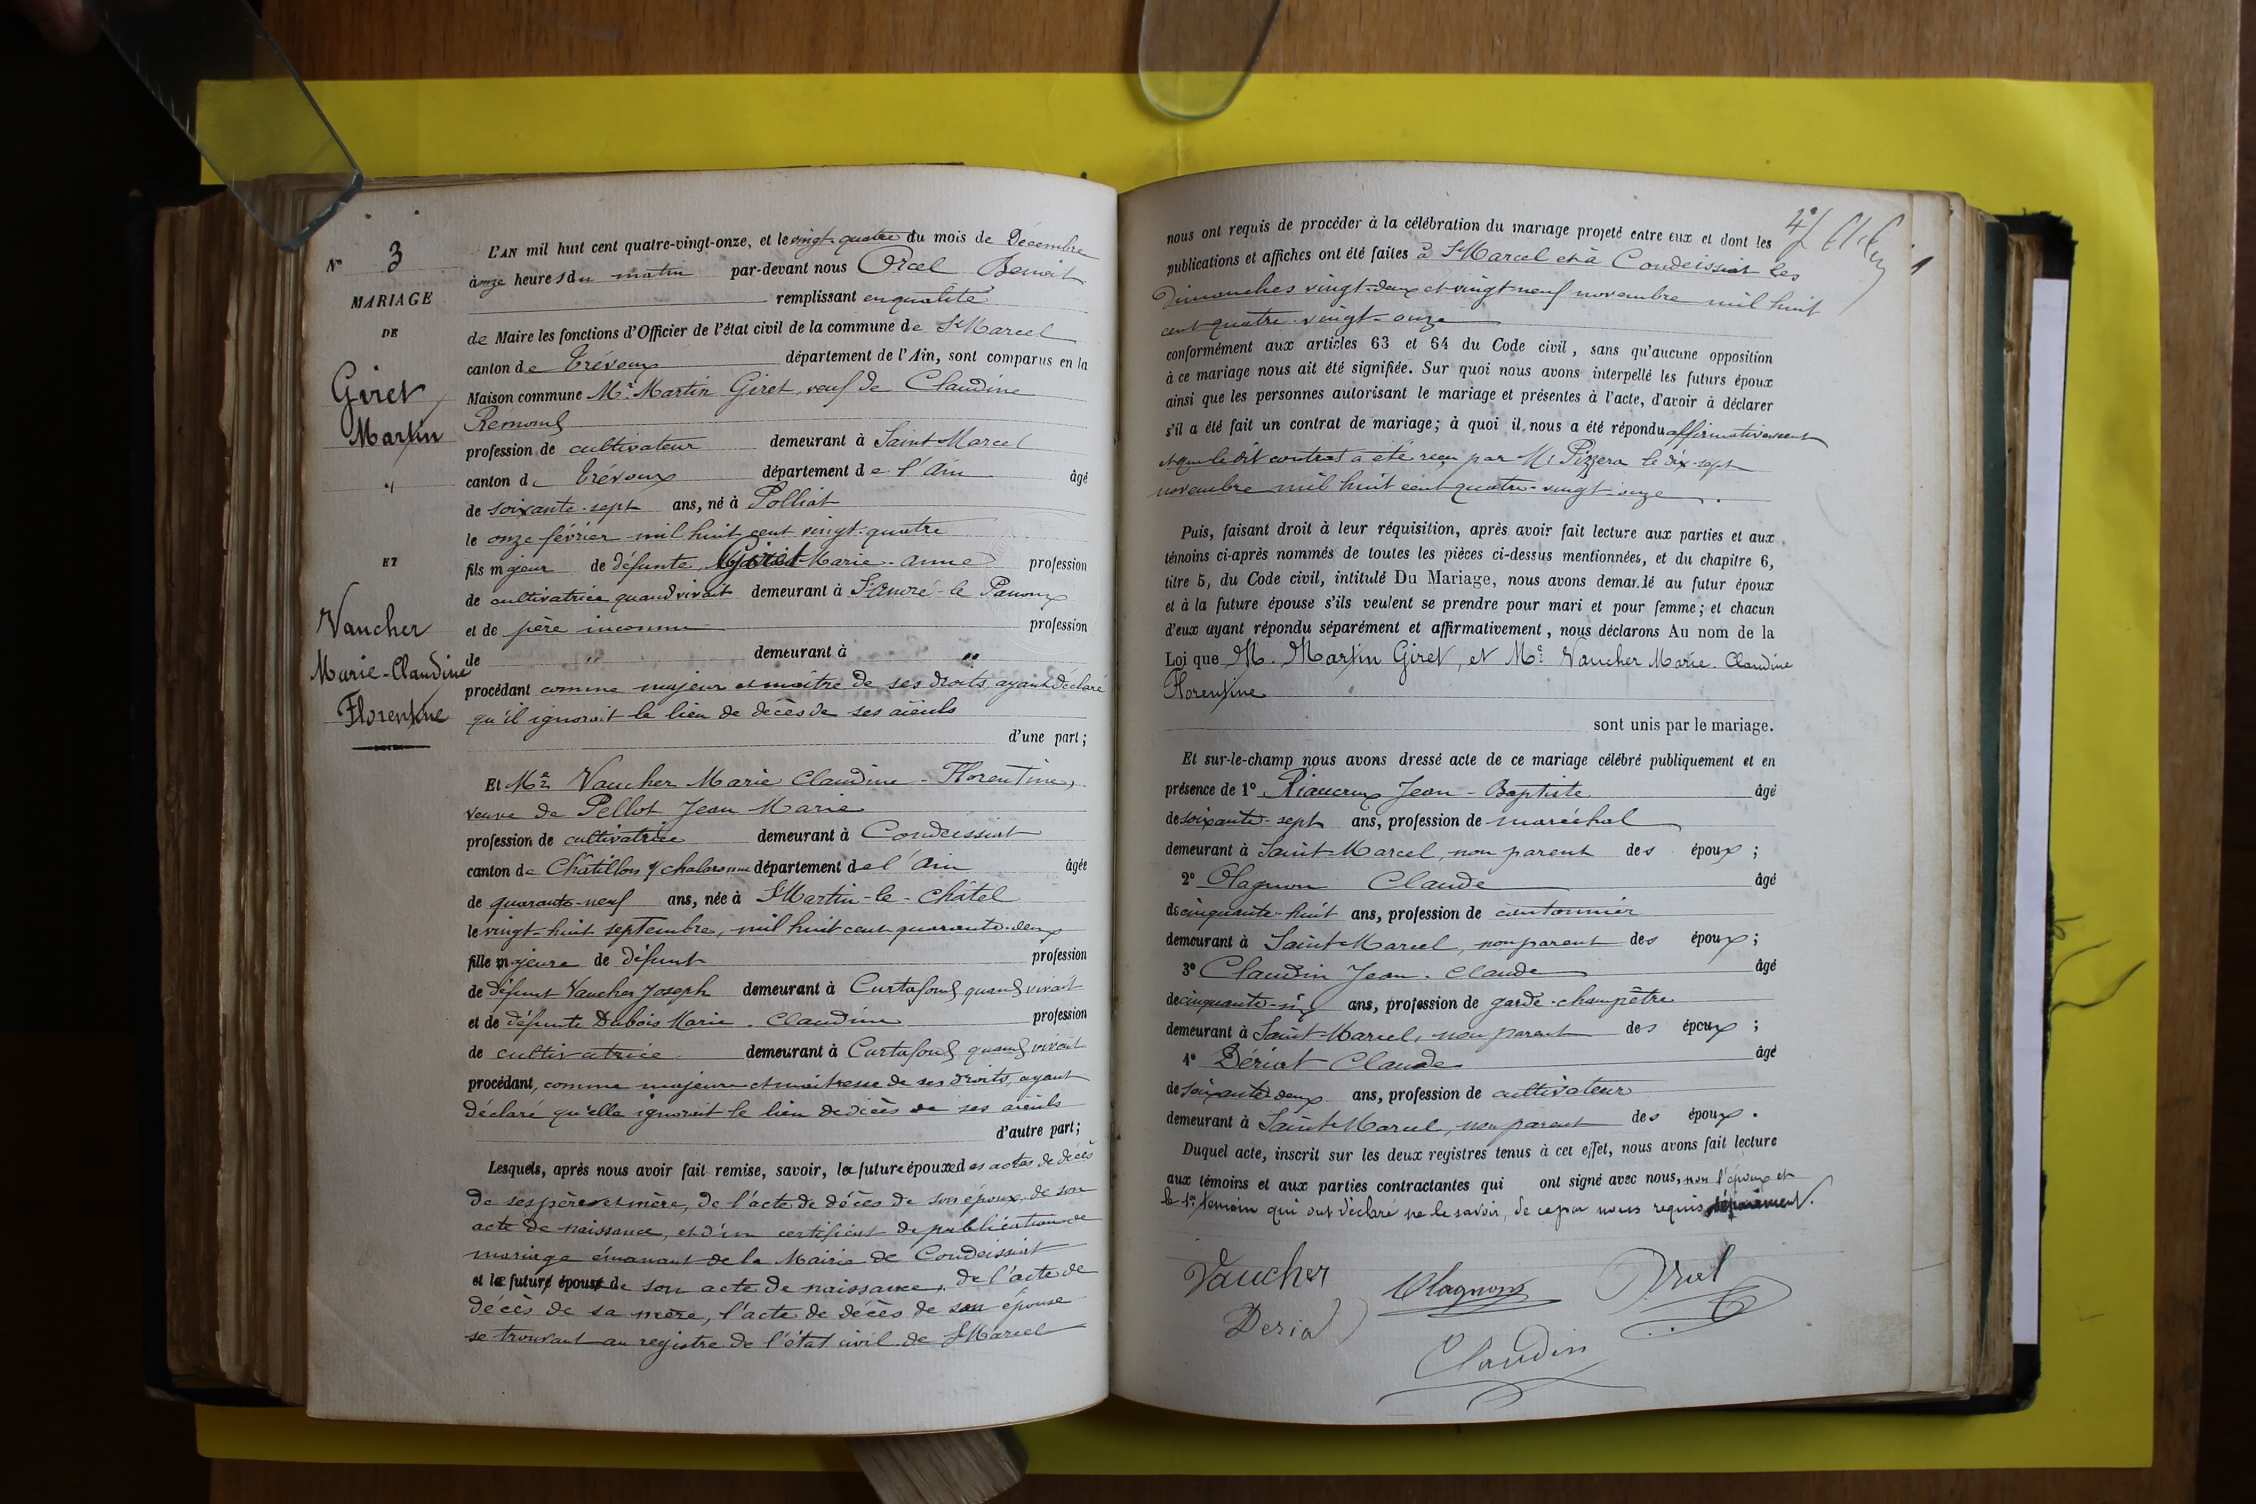 N° 3
MARIAGE
DE
Giret
Martin
"
ET
Vaucher
Marie-Claudine
Florentine
L'AN mil huit cent quatre-vingt-onze, et le vingt-quatre du mois de Décembre
à onze heures du matin par-devant nous Orcel Benoit
remplissant en qualité
de Maire les fonctions d'Officier de l'état civil de la commune de St Marcel
canton de Trévoux département de l'Ain, sont comparus en la
Maison commune Mr Martin Giret veuf de Claudine
Rémond
profession de cultivateur demeurant à Saint Marcel
canton de Trévoux département de l'Ain âgé
de soixante-sept ans, né à Polliat
le onze février mil huit cent vingt-quatre
fils majeur de défunte Giret Marie-Anne profession
de cultivatrice quand vivait demeurant à St André-le Panoux
et de père inconnu profession
de " demeurant à "
procédant comme majeur et maître de ses droits, ayant déclaré
qu'il ignorait le lieu de décès de ses aïeuls
d'une part;
Et Me Vaucher Marie Claudine-Florentine,
veuve de Pellot Jean Marie
profession de cultivatrice demeurant à Condeissiat
canton de Châtillon s/ chalaronne département de l'Ain âgée
de quarante-neuf ans, née à St Martin-le-Châtel
le vingt-huit septembre, mil huit cent quarante-deux
fille majeure de défunt profession
de défunt Vaucher Joseph demeurant à Curtafond quand vivait
et de défunte Dubois Marie-Claudine profession
de cultivatrice demeurant à Curtafond quand vivait
procédant, comme majeure et maîtresse de ses droits, ayant
déclaré qu'elle ignorait le lieu de décès de ses aïeuls
d'autre part;
Lesquels, après nous avoir fait remise, savoir, la future épouxe des actes de décès
de ses père et mère, de l'acte de décès de son époux, de son
acte de naissance, et d'un certificat de publication de
mariage émanant de la Mairie de Condeissiat
et le futur époux de son acte de naissance, de l'acte de
décès de sa mère, l'acte de décès de son épouse
se trouvant au registre de l'état civil de St Marcel
nous ont requis de procéder à la célébration du mariage projeté entre eux et dont les
publications et affiches ont été faites à St Marcel et à Condeissiat les
Dimanches vingt-deux et vingt-neuf novembre mil huit
cent quatre-vingt-onze
conformément aux articles 63 et 64 du Code civil, sans qu'aucune opposition
à ce mariage nous ait été signifiée. Sur quoi nous avons interpellé les futurs époux
ainsi que les personnes autorisant le mariage et présentes à l'acte, d'avoir à déclarer
s'il a été fait un contrat de mariage; à quoi il nous a été répondu affirmativement
et que le dit contrat a été reçu par Me Pizzera le dix-sept
novembre mil huit cent quatre-vingt onze.
Puis, faisant droit à leur réquisition, après avoir fait lecture aux parties et aux
témoins ci-après nommés de toutes les pièces ci-dessus mentionnées, et du chapitre 6,
titre 5, du Code civil, intitulé Du Mariage, nous avons demandé au futur époux
et à la future épouse s'ils veulent se prendre pour mari et pour femme; et chacun
d'eux ayant répondu séparément et affirmativement, nous déclarons Au nom de la
Loi que M. Martin Giret, et Me Vaucher Marie-Claudine
Florentine
sont unis par le mariage.
Et sur-le-champ nous avons dressé acte de ce mariage célébré publiquement et en
présence de 1° Riaucrux Jean-Baptiste âgé
de soixante-sept ans, profession de maréchal
demeurant à Saint Marcel, non parent des époux;
2° Olagnon Claude âgé
de cinquante-huit ans, profession de cantonnier
demeurant à Saint Marcel, non parent des époux;
3° Claudin Jean-Claude âgé
de cinquante-six ans, profession de garde-champêtre
demeurant à Saint-Marcel, non parent des époux;
4° Dériat Claude âgé
de soixante-deux ans, profession de cultivateur
demeurant à Saint Marcel, non parent des époux.
Duquel acte, inscrit sur les deux registres tenus à cet effet, nous avons fait lecture
aux témoins et aux parties contractantes qui ont signé avec nous, non l'époux et
le 1er témoin qui ont déclaré ne le savoir, de ce par nous requis séparément.
Vaucher Olagnon Orcel
Deriat
Claudin